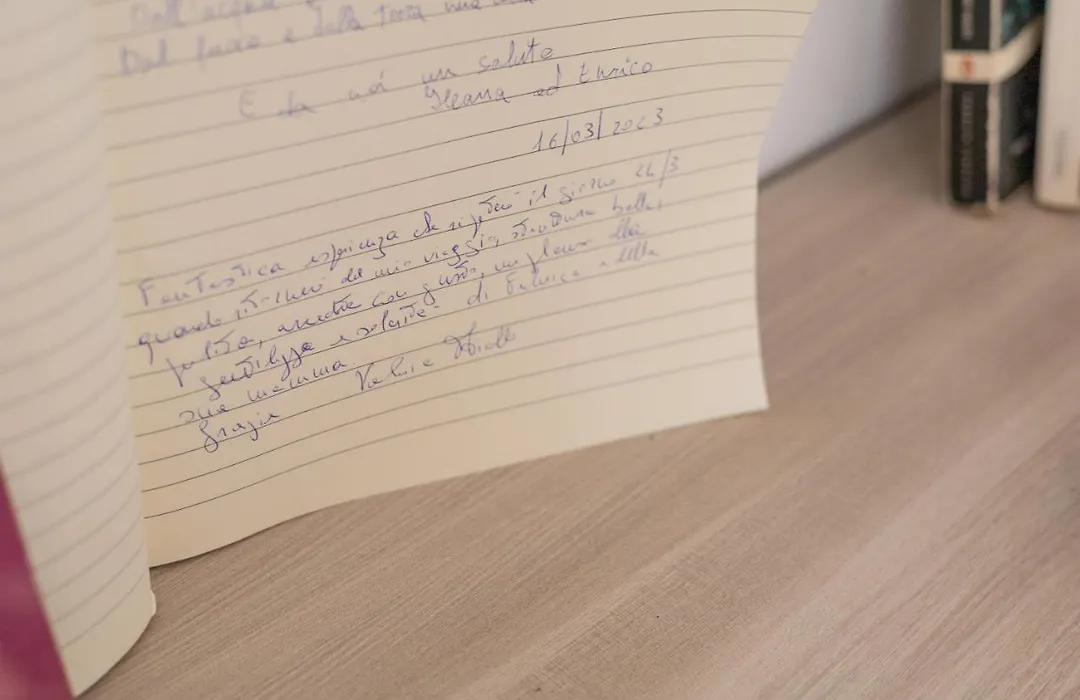 Dall'acqua
Dal fuoco e dalla terra
E da noi un saluto
Ileana ed Enrico
16/03/2023
Fantastica esperienza che ripeterò il giorno 24/3
quando ritornerò dal mio viaggio, struttura bella,
pulita, arredata con gusto, un plauso alla
gentilezza e solarità di e della
sua mamma.
Grazie Valeria